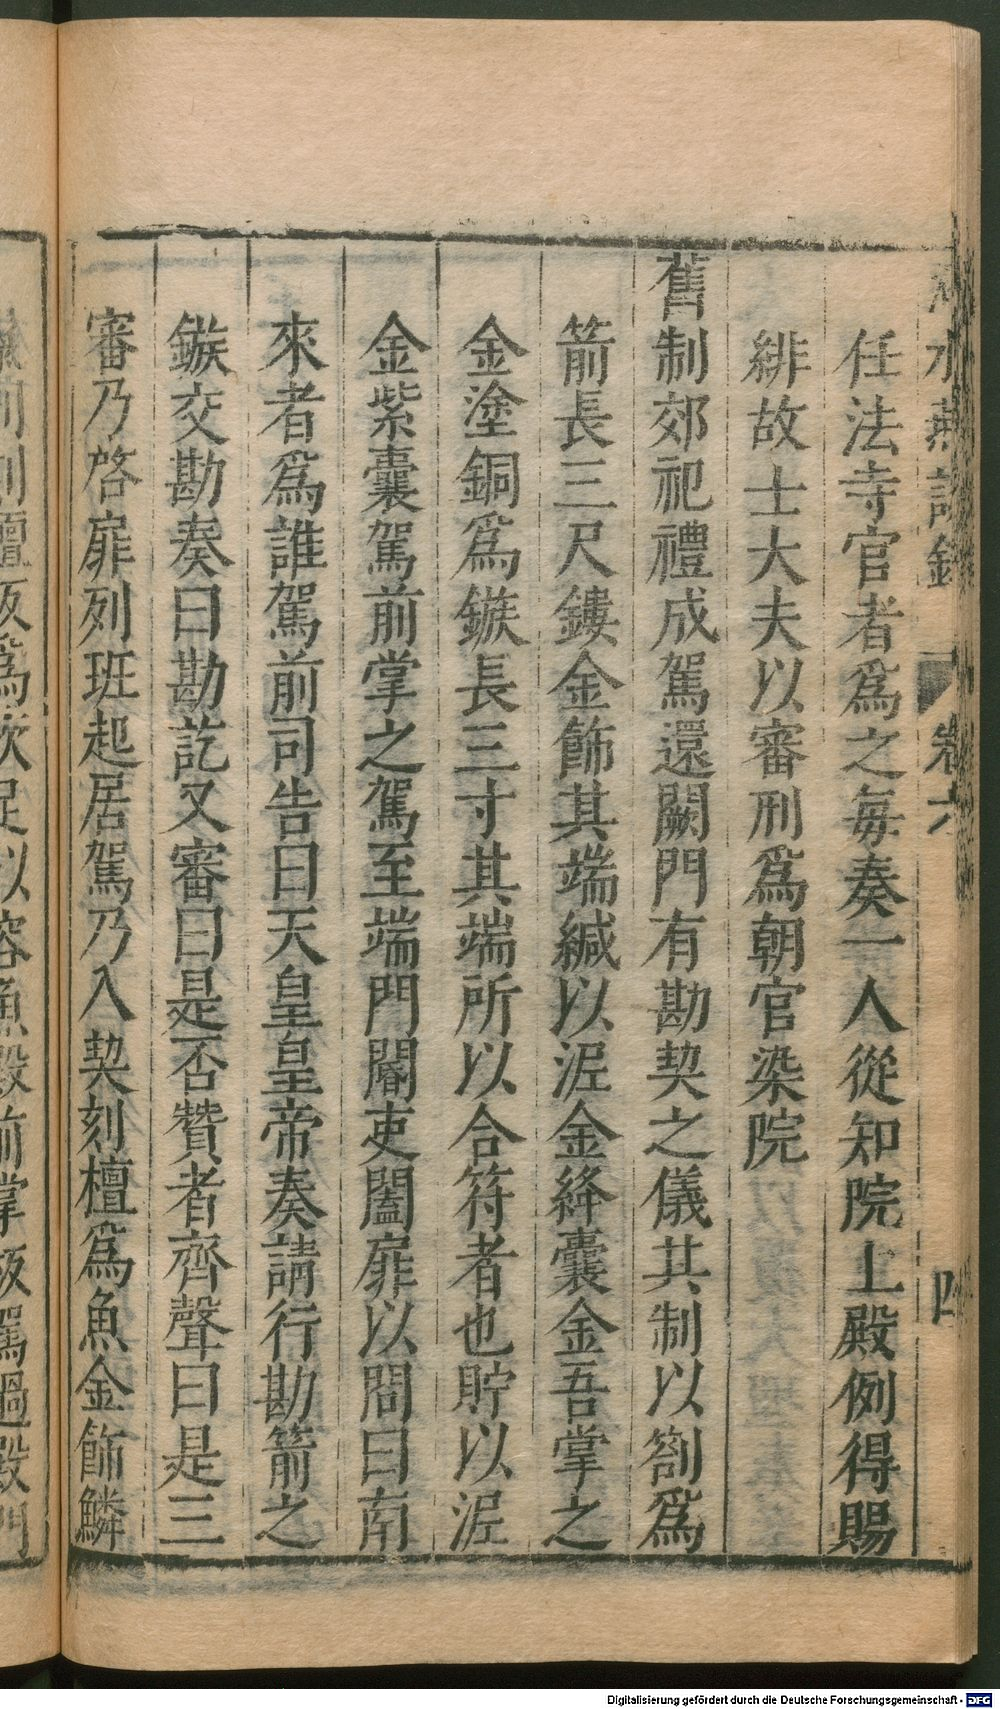 水燕談錄 卷六 四
任法寺官者爲之每奏一人從知院上殿例得賜
緋故士大夫以審刑爲朝官染院
舊制郊祀禮成駕還闕門有勘契之儀其制以劄爲
箭長三尺鏤金飾其端緘以泥金絳囊金吾掌之
金塗銅爲鏃長三寸其端所以合符者也貯以泥
金紫囊駕前掌之駕至端門閽吏闔扉以問曰南
來者爲誰駕前司告曰天皇皇帝奏請行勘箭之
鏃交勘奏曰勘訖又審曰是否贊者齊聲曰是三
審乃啓扉列班起居駕乃入契刻檀爲魚金飾鱗
刻檀板爲坎足以容魚殿前掌板駕過殿門
Digitalisierung gefördert durch die Deutsche Forschungsgemeinschaft - DFG